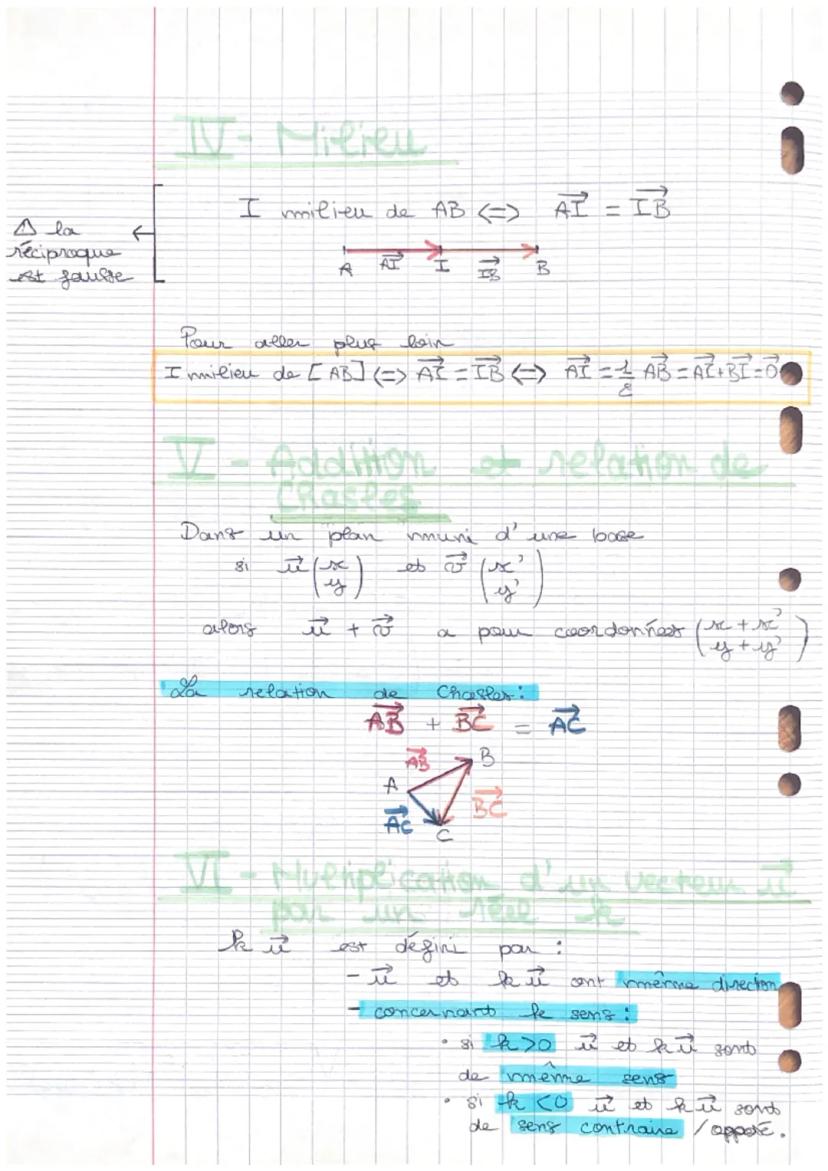 IV - Milieu
I milieu de AB <=> \vec{AI} = \vec{IB}
⚠ la
réciproque
est fausse
\vec{AI} \vec{IB}
A I B
Pour aller plus loin
I milieu de [AB] <=> \vec{AI} = \vec{IB} <=> \vec{AI} = \frac{1}{2} \vec{AB} = \vec{AI} + \vec{BI} = \vec{0}
V - Addition et relation de
Chasles
Dans un plan muni d'une base
si \vec{u} (x y) et \vec{v} (x' y')
alors \vec{u} + \vec{v} a pour coordonnées (x + x' y + y')
La relation de Chasles :
\vec{AB} + \vec{BC} = \vec{AC}
\vec{AB} B
A
\vec{BC}
\vec{AC} C
VI - Multiplication d'un vecteur \vec{u}
par un réel k
k \vec{u} est défini par :
- \vec{u} et k \vec{u} ont même direction
- concernant le sens :
• si k > 0 \vec{u} et k \vec{u} sont
de même sens
• si k < 0 \vec{u} et k \vec{u} sont
de sens contraire / opposé.